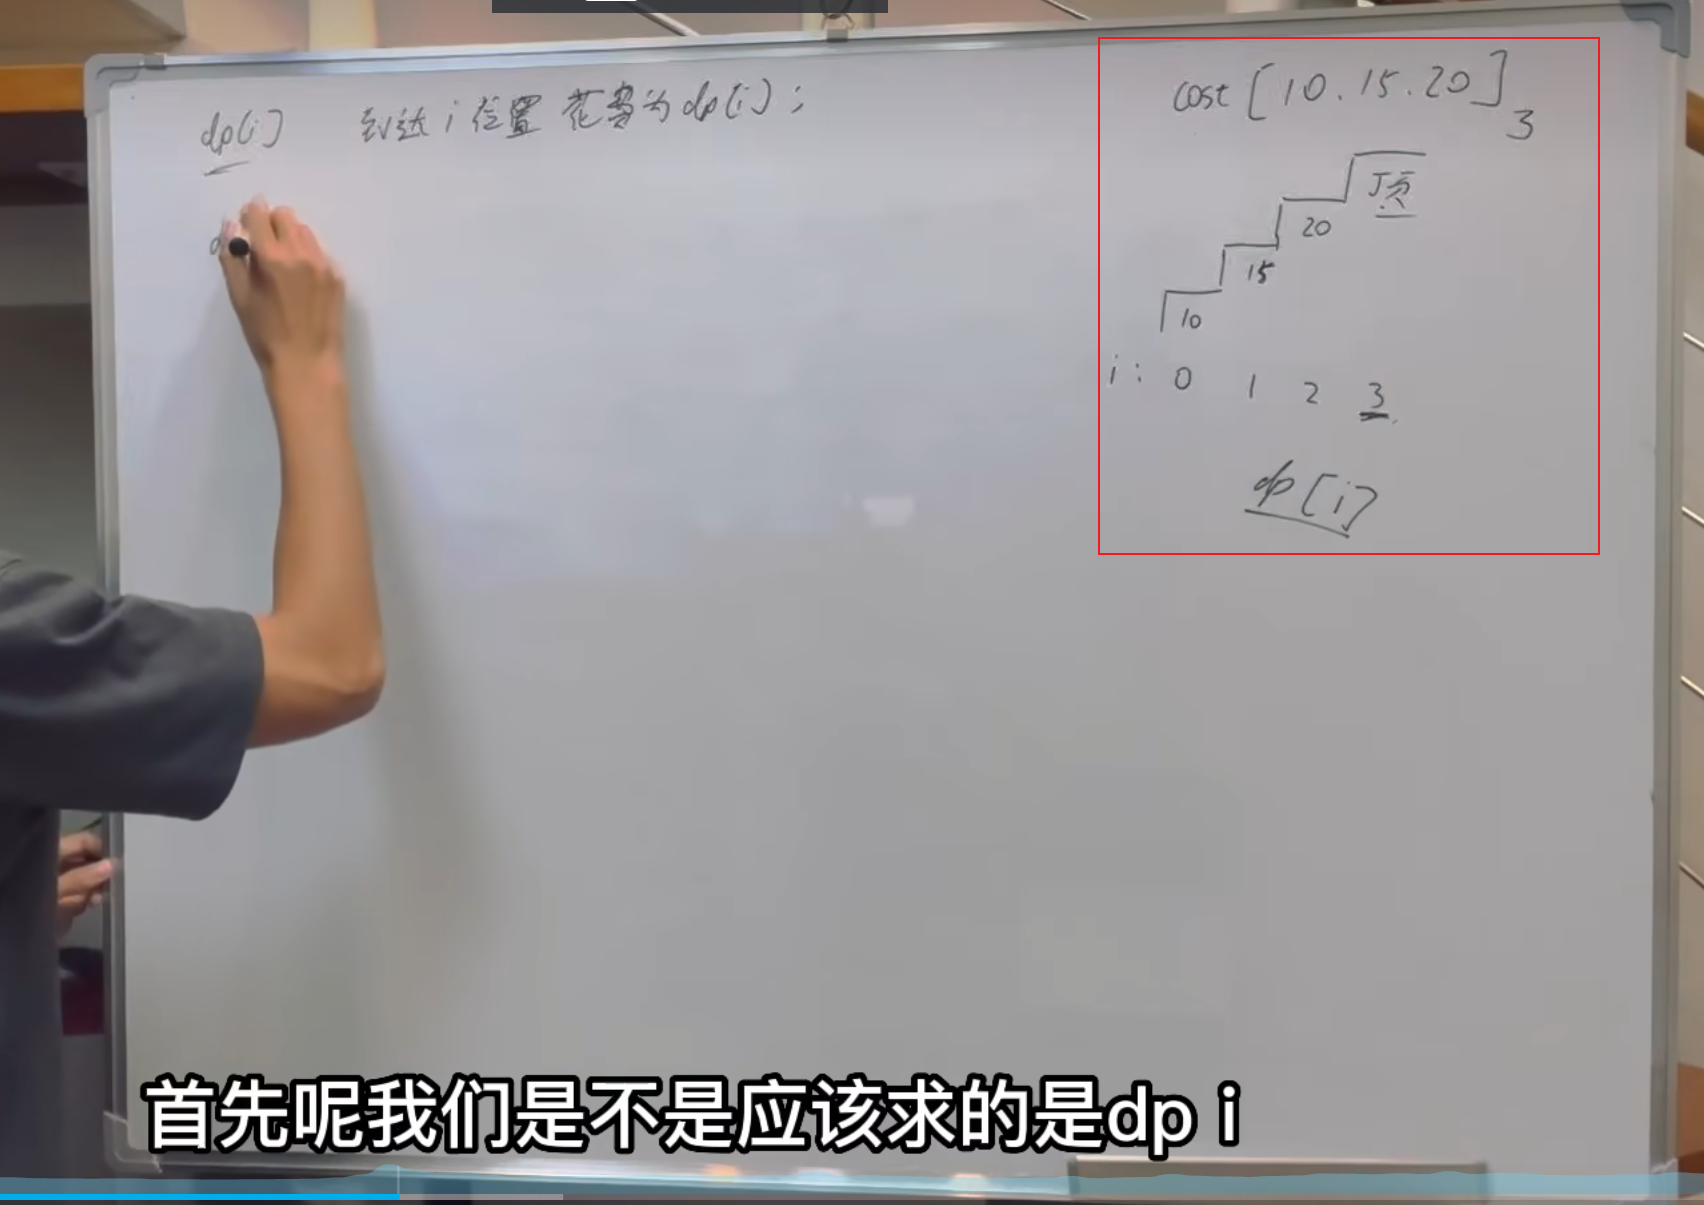 dp[i] 到达 i 位置 花费为 dp[i];
cost [10.15.20]
3
顶
20
15
10
i: 0 1 2 3
dp[i]
首先呢我们是不是应该求的是dp i